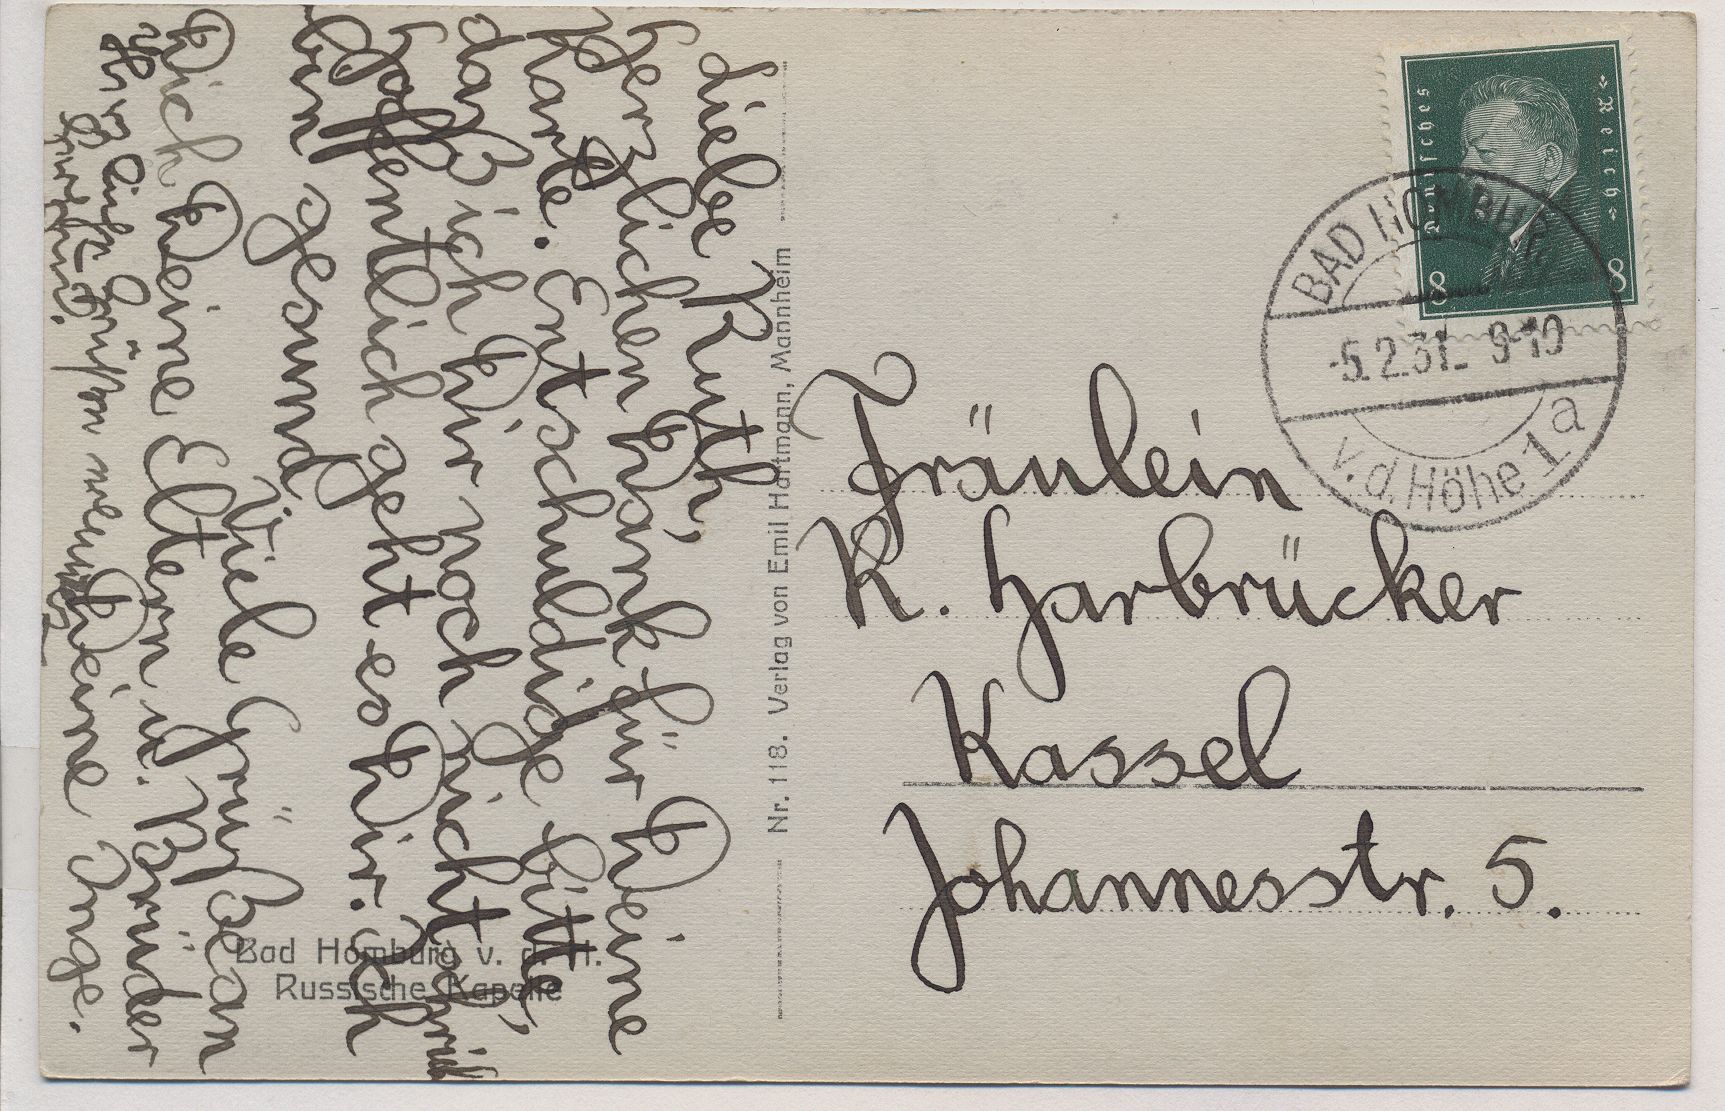 Liebe Ruth,
herzlichen Dank für Deine
Karte. Entschuldige bitte,
daß ich Dir noch nicht schrieb
hoffentlich geht es Dir. Ich
bin gesund.
Viele Grüße an
Dich Deine Eltern u. Bruder
Deine Inge.
Grüßen
Nr. 118. Verlag von Emil Hartmann, Mannheim
Bad Homburg v. d. H.
Russische Kapelle
Deutsches Reich
8 8
BAD HOMBURG
-5.2.31. 9-10
v.d. Höhe 1a
Fräulein
R. Harbrücker
Kassel
Johannesstr. 5.